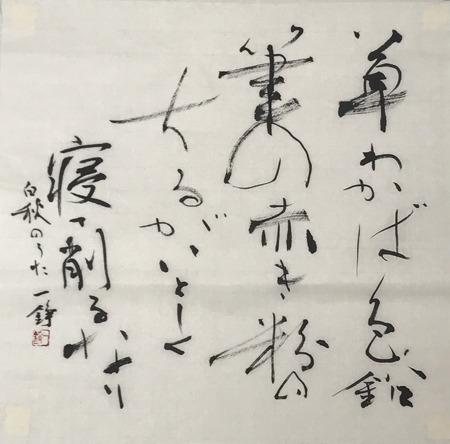 草わかば色鉛
筆の赤き粉の
ちるがいとしく
寝て削るなり
白秋のうた 一